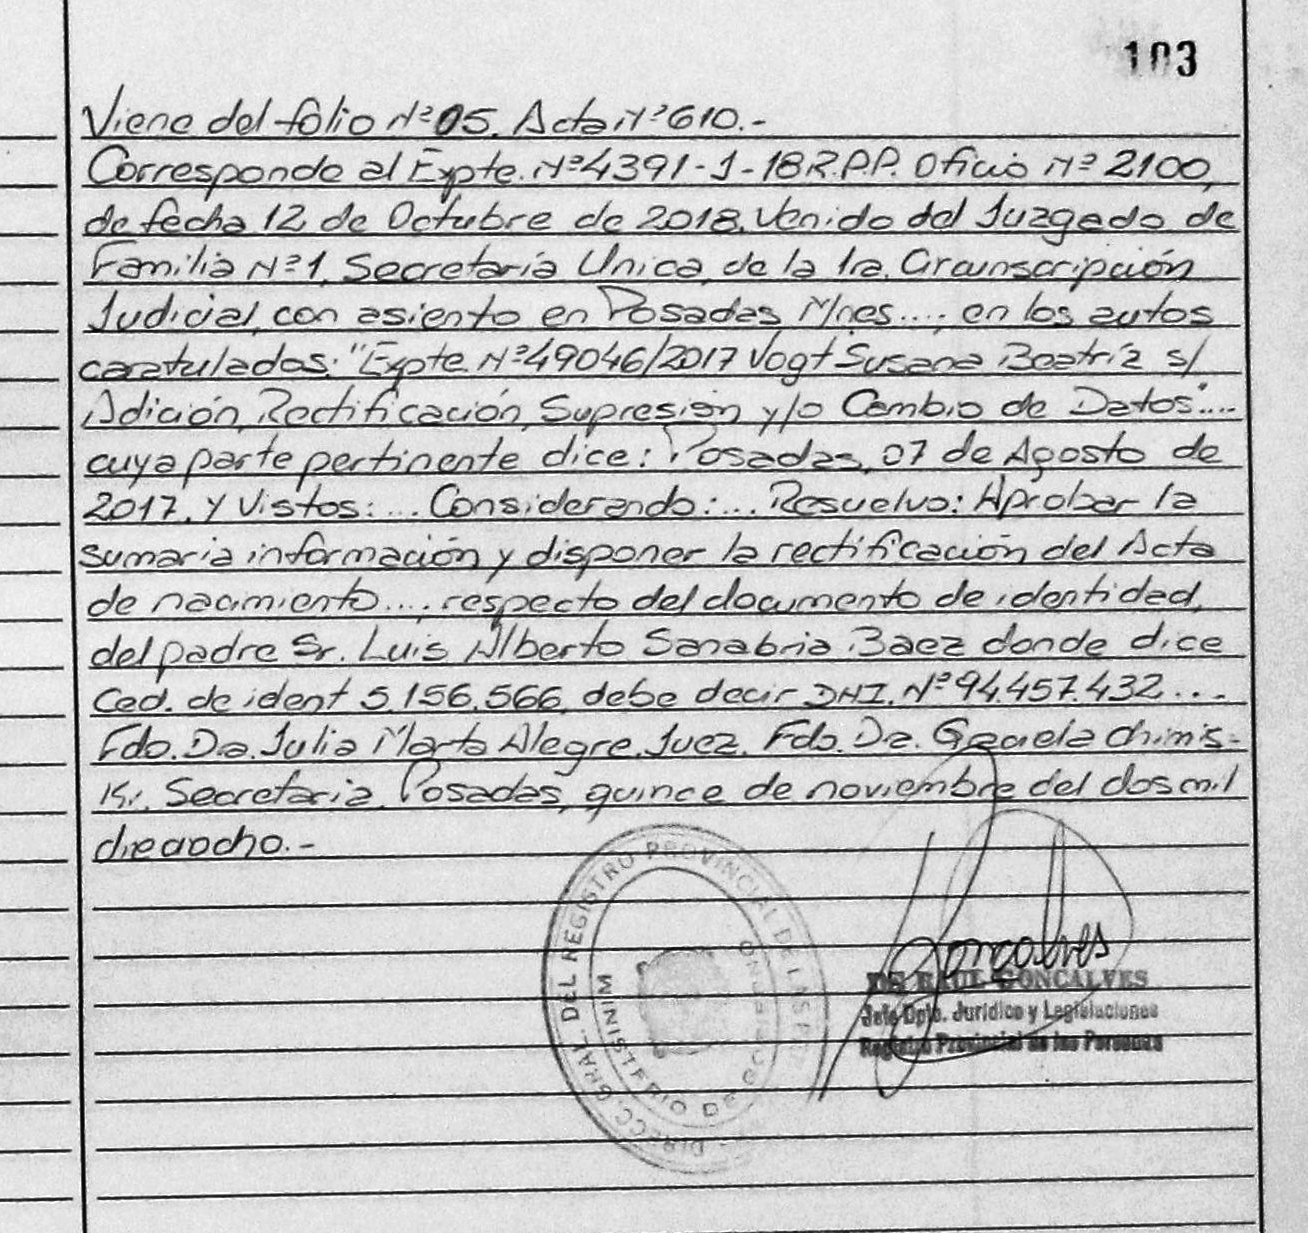 103
Viene del folio Nº 05. Acta Nº 610.-
Corresponde al Expte. Nº 4391-1-18 R.P.P. Oficio Nº 2100,
de fecha 12 de Octubre de 2018. Venido del Juzgado de
Familia Nº 1, Secretaría Unica, de la 1ra. Circunscripción
Judicial, con asiento en Posadas Mnes...., en los autos
caratulados: "Expte. Nº 49046/2017 Vogt Susana Beatríz s/
Adición, Rectificación, Supresión y/o Cambio de Datos"....
cuya parte pertinente dice: Posadas, 07 de Agosto de
2017. Y Vistos:... Considerando:... Resuelvo: Aprobar la
sumaria información y disponer la rectificación del Acta
de nacimiento...., respecto del documento de identidad,
del padre Sr. Luis Alberto Sanabria Baez donde dice
Ced. de ident 5.156.566, debe decir DNI. Nº 94.457.432....
Fdo. Dra. Julia Marta Alegre. Juez. Fdo. Dra. Graciela Chimis-
ki. Secretaria. Posadas, quince de noviembre del dos mil
dieciocho.-
DIRECC. GRAL. DEL REGISTRO PROVINCIAL DE LAS
MINISTERIO DE GOBIERNO
Goncalves
RAUL GONCALVES
Jefe Dpto. Jurídico y Legislaciones
Registro Provincial de las Personas